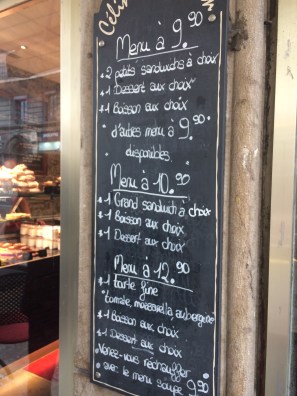 Célin
Menu à 9.90
* 2 petits sandwichs à choix
* 1 Dessert aux choix
* 1 Boisson aux choix
d'autres menu à 9.90
disponibles.
Menu à 10.90
* 1 Grand sandwich à choix
* 1 Boisson aux choix
* 1 Dessert aux choix
Menu à 12.90
* 1 tarte fine
tomate, mozzarella, aubergine
* 1 Boisson aux choix
* 1 Dessert aux choix
Venez-vous réchauffer
avec le menu soupe 9.90